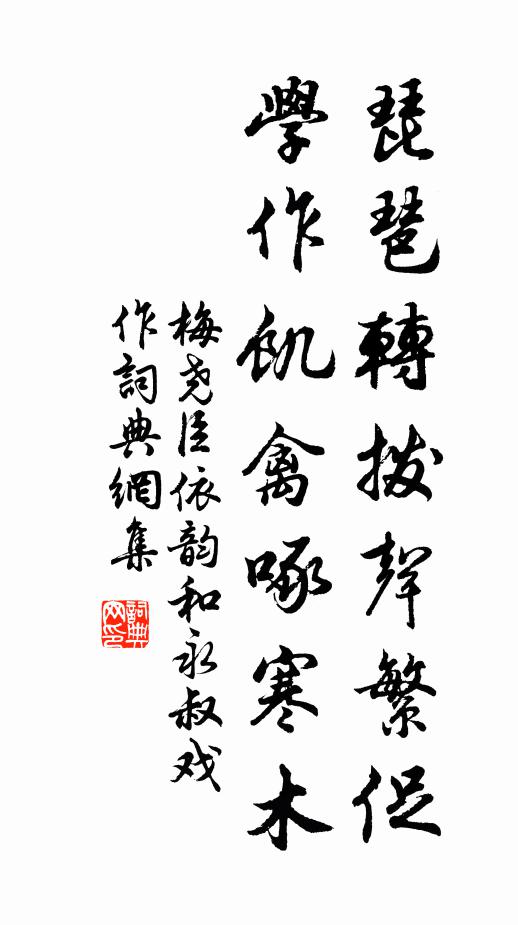 琵琶轉拨聲繁促
學作飢禽啄寒木
梅尧臣依韵和永叔戏
作詞典網集
詞典網印